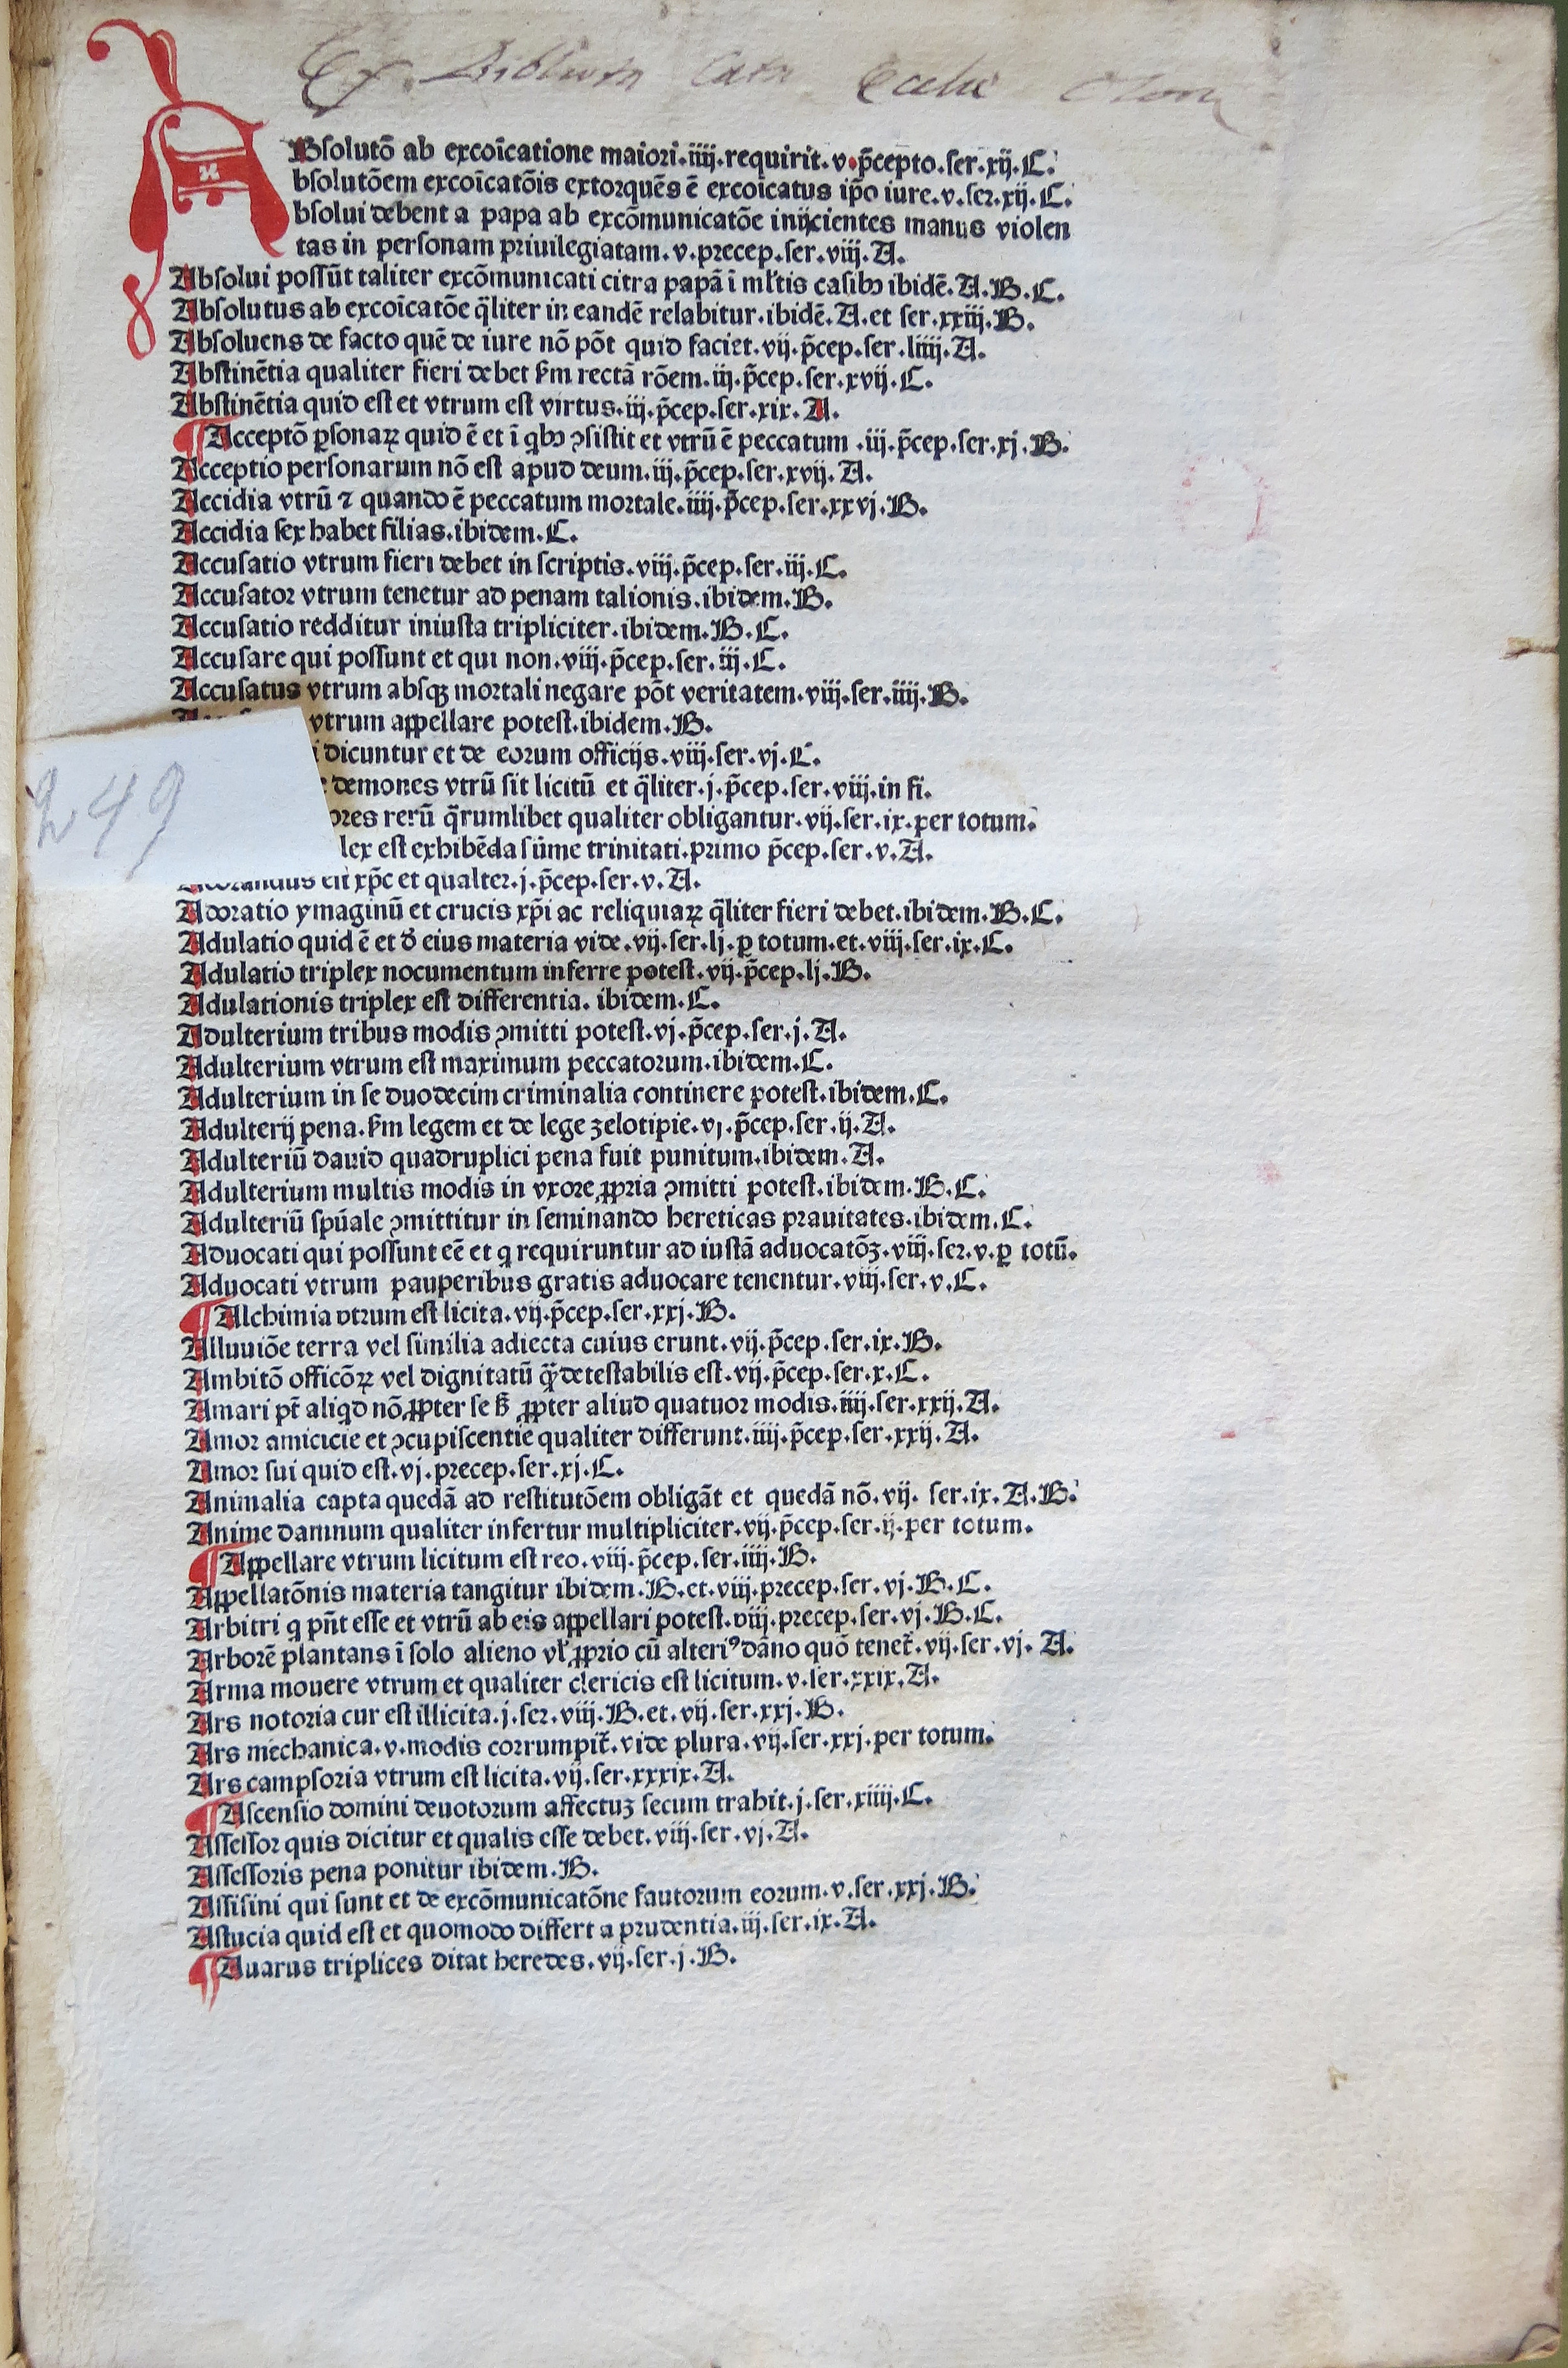 Ex Bibliotheca Cath Eccliae
ABsolutō ab excoīcatione maiori.iiij.requirit.v.p̄cepto.ser.xij.C.
bsolutōem excoīcatōis extorquēs ē excoīcatus ip̄o iure.v.ser.xij.C.
bsolui debent a papa ab excōmunicatōe iniicientes manus violen
tas in personam priuilegiatam.v.precep.ser.viij.A.
Absolui possūt taliter excōmunicati citra papā ī mltis casibꝰ ibidē.A.B.C.
Absolutus ab excoīcatōe q̄liter in eandē relabitur.ibidē.A.et ser.xxiij.B.
Absoluens de facto quē de iure nō pōt quid faciet.vij.p̄cep.ser.liiij.A.
Abstinētia qualiter fieri debet ẜm rectā rōem.iij.p̄cep.ser.xvij.C.
Abstinētia quid est et vtrum est virtus.iij.p̄cep.ser.xix.A.
¶ Acceptō ꝑsonaꝝ quid ē et ī qbꝰ ꝯsistit et vtrū ē peccatum.iij.p̄cep.ser.xj.B.
Acceptio personarum nō est apud deum.iij.p̄cep.ser.xvij.A.
Accidia vtrū ⁊ quando ē peccatum mortale.iiij.p̄cep.ser.xxvj.B.
Accidia sex habet filias.ibidem.C.
Accusatio vtrum fieri debet in scriptis.viij.p̄cep.ser.iij.C.
Accusator vtrum tenetur ad penam talionis.ibidem.B.
Accusatio redditur iniusta tripliciter.ibidem.B.C.
Accusare qui possunt et qui non.viij.p̄cep.ser.iij.C.
Accusatus vtrum absqꝫ mortali negare pōt veritatem.viij.ser.iiij.B.
vtrum appellare potest.ibidem.B.
i dicuntur et de eorum officijs.viij.ser.vj.C.
demones vtrū sit licitū et q̄liter.j.p̄cep.ser.viij.in fi.
ores rerū q̄rumlibet qualiter obligantur.vij.ser.ix.per totum.
lex est exhibēda sūme trinitati.primo p̄cep.ser.v.A.
Adorandus est xp̄c et qualter.j.p̄cep.ser.v.A.
Adoratio ymaginū et crucis xp̄i ac reliquiaꝝ q̄liter fieri debet.ibidem.B.C.
Adulatio quid ē et ď eius materia vide.vij.ser.lj.ꝑ totum.et.viij.ser.ix.C.
Adulatio triplex nocumentum inferre potest.vij.p̄cep.lj.B.
Adulationis triplex est differentia.ibidem.C.
Adulterium tribus modis ꝯmitti potest.vj.p̄cep.ser.j.A.
Adulterium vtrum est maximum peccatorum.ibidem.C.
Adulterium in se duodecim criminalia continere potest.ibidem.C.
Adulterij pena.ẜm legem et de lege zelotipie.vj.p̄cep.ser.ij.A.
Adulteriū dauid quadruplici pena fuit punitum.ibidem.A.
Adulterium multis modis in vxore ꝓpria ꝯmitti potest.ibidem.B.C.
Adulteriū spūale ꝯmittitur in seminando hereticas prauitates.ibidem.C.
Aduocati qui possunt eē et q requiruntur ad iustā aduocatōꝫ.viij.ser.v.ꝑ totū.
Aduocati vtrum pauperibus gratis aduocare tenentur.viij.ser.v.C.
¶ Alchimia vtrum est licita.vij.p̄cep.ser.xxj.B.
Alluuiōe terra vel similia adiecta cuius erunt.vij.p̄cep.ser.ix.B.
Ambitō officōꝝ vel dignitatū q̄ detestabilis est.vij.p̄cep.ser.x.C.
Amari pt̄ aliqd nō ꝓpter se ẜ ꝓpter aliud quatuor modis.iiij.ser.xxij.A.
Amor amicicie et ꝯcupiscentie qualiter differunt.iiij.p̄cep.ser.xxij.A.
Amor sui quid est.vj.precep.ser.xj.C.
Animalia capta quedā ad restitutōem obligāt et quedā nō.vij.ser.ix.A.B.
Anime damnum qualiter infertur multipliciter.vij.p̄cep.ser.ij.per totum.
¶ Appellare vtrum licitum est reo.viij.p̄cep.ser.iiij.B.
Appellatōnis materia tangitur ibidem.B.et.viij.precep.ser.vj.B.C.
Arbitri q pn̄t esse et vtrū ab eis appellari potest.viij.precep.ser.vj.B.C.
Arborē plantans ī solo alieno vl̕ ꝓprio cū alteriꝰ dāno quō tenet̄.vij.ser.vj.A.
Arma mouere vtrum et qualiter clericis est licitum.v.ser.xxix.A.
Ars notoria cur est illicita.j.ser.viij.B.et.vij.ser.xxj.B.
Ars mechanica.v.modis corrumpit̄.vide plura.vij.ser.xxj.per totum.
Ars campsoria vtrum est licita.vij.ser.xxxix.A.
¶ Ascensio domini deuotorum affectuꝫ secum trahit.j.ser.xiiij.C.
Assessor quis dicitur et qualis esse debet.viij.ser.vj.A.
Assessoris pena ponitur ibidem.B.
Assisini qui sunt et de excōmunicatōne fautorum eorum.v.ser.xxj.B.
Astucia quid est et quomodo differt a prudentia.iij.ser.ix.A.
¶ Auarus triplices ditat heredes.vij.ser.j.B.
249